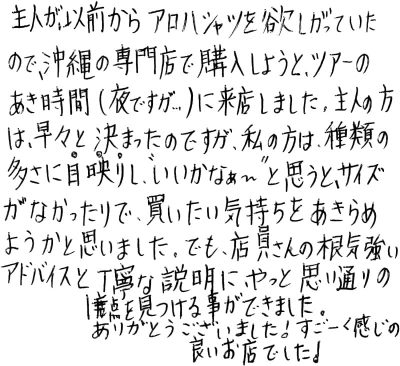 主人が、以前から アロハシャツを欲しがっていた
ので、沖縄の専門店で購入しようと、ツアーの
あき時間(夜ですが…)に来店しました。主人の方
は、早々と決まったのですが、私の方は、種類の
多さに目映りし、“いいかなぁ~”と思うと、サイズ
がなかったりで、買いたい気持ちをあきらめ
ようかと思いました。でも、店員さんの根気強い
アドバイスと丁寧な説明に、やっと思い通りの
1着を見つける事ができました。
ありがとうございました!すご~く感じの
良いお店でした!